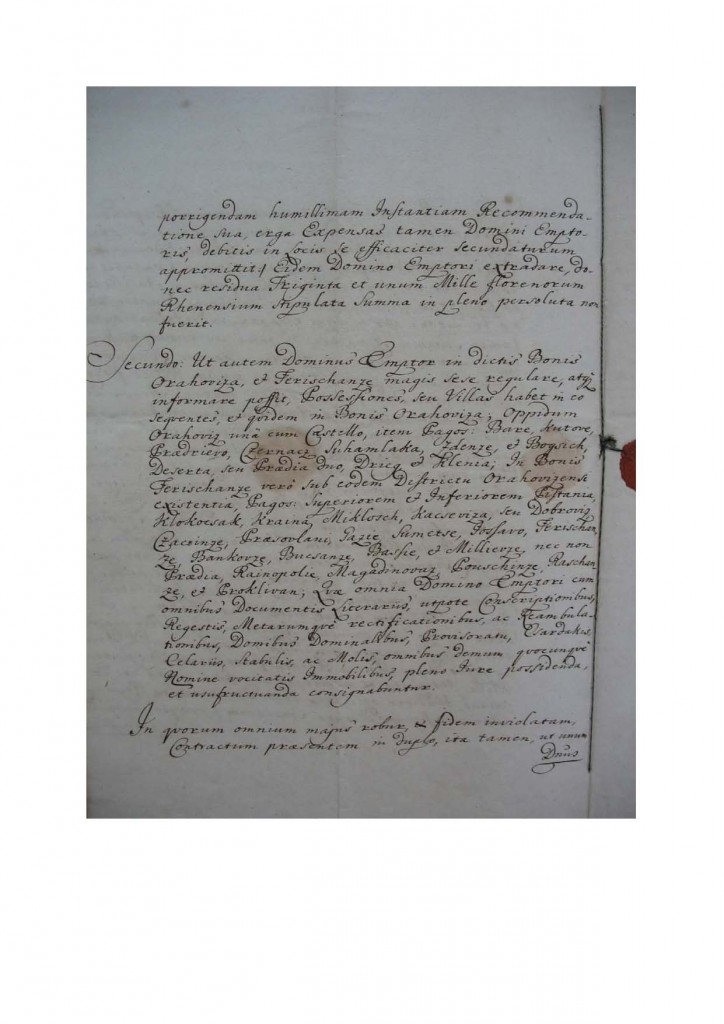 porrigendam humillimam Instantiam Recommenda-
tione sua, erga Expensas tamen Domini Empto-
ris, debitis in Locis se efficaciter secundaturum
appromittit,/ Eidem Domino Emptori extradare, do-
nec residua Triginta et unum Mille florenorum
Rhenensium Stipulata Summa in pleno persoluta non
fuerit.
Secundo: Ut autem Dominus Emptor in dictis Bonis
Orahoviza, et Ferischanze magis sese regulare, atq
informare possit, Possessiones, seu Villas habet in eo
seqventes, et qvidem in Bonis Orahoviza; Oppidum
Orahoviz unà cum Castello, item Pagos: Bare, Kutove,
Prædrievo, Czernacz, Suhamlaka, Zdenze, et Bogsich,
Deserta, seu Prædia duo, Driecz et Klenia; In Bonis
Ferischanze verò sub eodem Districtu Orahovizensi
existentia, Pagos: Superiorem et Inferiorem Pistania,
Klokocsak, Kraina, Miklosch, Kacseviza, seu Dobroviz,
Czacinze, Præsorlani, Gazie, Sumetse, Jossavo, Ferischan-
ze, Bankovze, Bucsanze, Bassie, et Millievze, nec non
Prædia, Rainopolie, Magadinovaz, Pouschinze, Raschan-
ze, et Proklivan; Qvæ omnia Domino Emptori cum
omnibus Documentis Literariis, utpote Conscriptionibus,
Regestis, Metarumqvè rectificationibus, ac Reambula-
tionibus, Domibus Dominalibus, Provisoratu, Csardakis,
Celariis, Stabulis, ac Molis, omnibus demum qvocunqvè
Nomine vocitatis Immobilibus, pleno Iure possidenda,
et usufructuanda consignabuntur.
In qvorum omnium majus robur, & fidem inviolatam,
Contractum præsentem in duplo, ita tamen, ut unum
Dnus